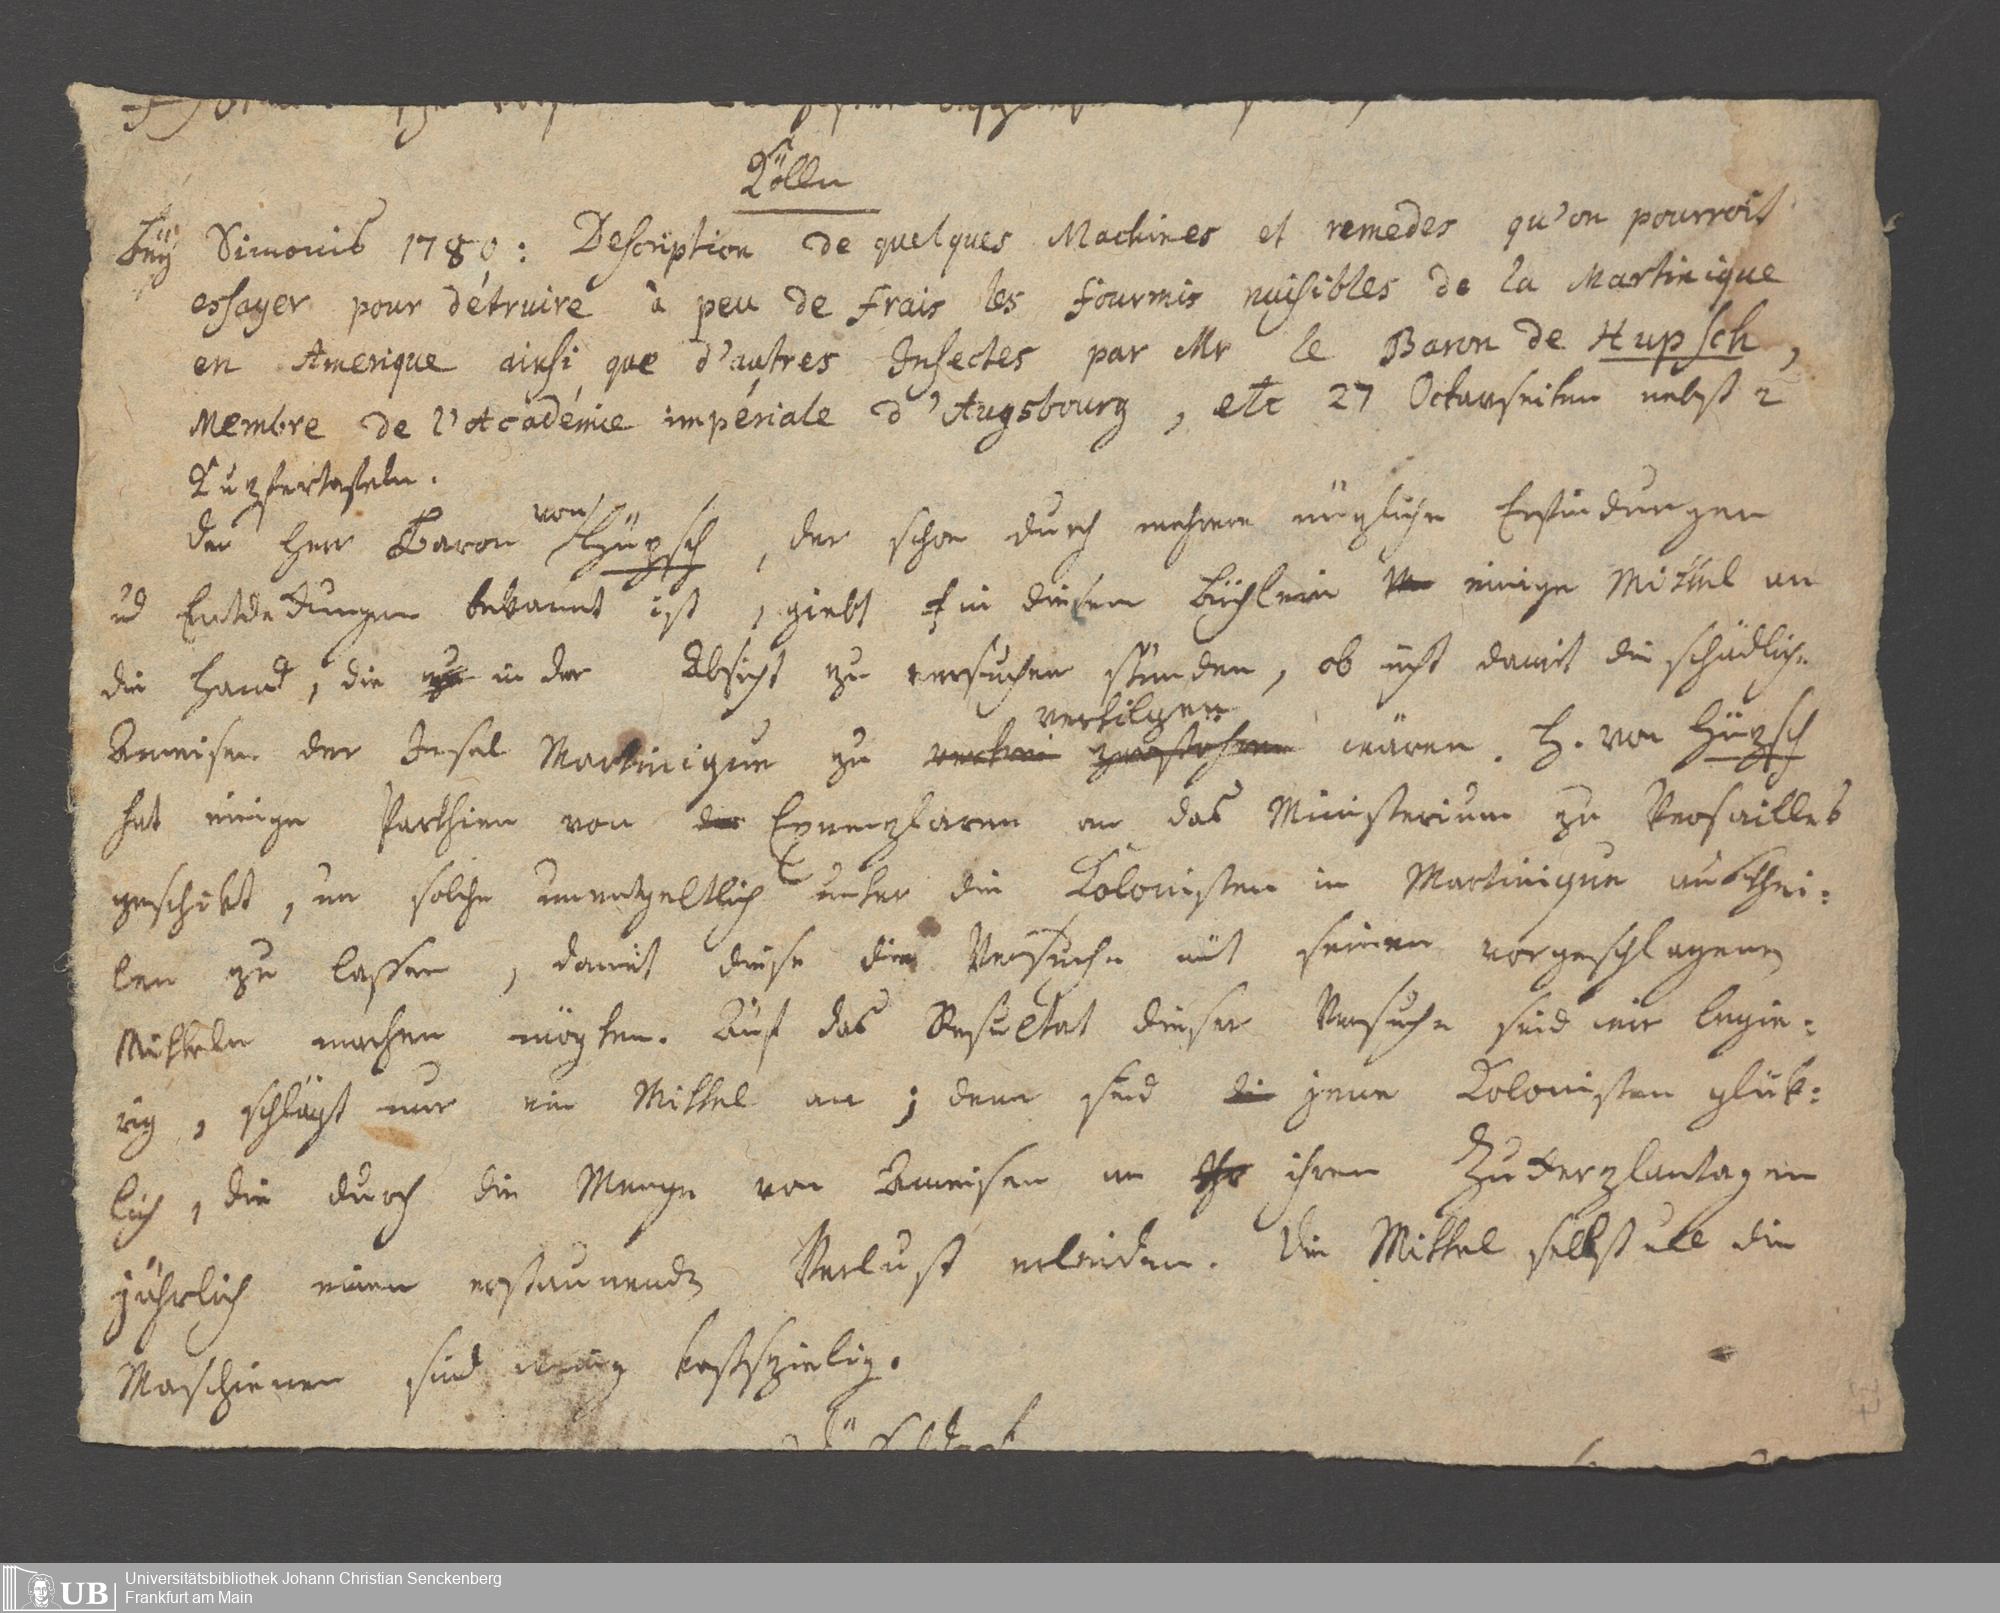 Cölln
Bey Simonis 1780: Description de quelques Machines et remedes qu'on pourroit
essayer pour détruire à peu de frais les fourmis nuisibles de la Martinique
en Amerique ainsi que d'autres Insectes par Mr le Baron de Hupsch,
Membre de l'Académie impériale d'Augsbourg, etc 27 Octavseiten nebst 2
Kupfertafeln.
Der Herr Baron von Hüpsch, der schon durch mehrere nüzliche Erfindungen
und Entdekungen bekannt ist, giebt in diesem Büchlein einige Mittel an
die Hand, die in der Absicht zu versuchen stünden, ob nicht damit die schädliche
Ameisen der Insel Martinique zu vertilgen wären. H. von Hüpsch
hat einige Parthien von Exemplaren an das Ministerium zu Versailles
geschikt, um solche unentgeltlich unter die Kolonisten in Martinique austhei:
len zu lassen, damit diese die Versuche mit seinen vorgeschlagenen
Mitteln machen mögten. Auf das Resultat dieser Versuche sind wir begie:
rig, schlägt nur ein Mittel an; dann sind jene Kolonisten glük:
lich, die durch die Menge von Ameisen an ihren Zukerplantagen
jährlich einen erstaunenden Verlust erleiden. Die Mittel selbst und die
Maschienen sind wenig kostspielig.
UB
Universitätsbibliothek Johann Christian Senckenberg
Frankfurt am Main